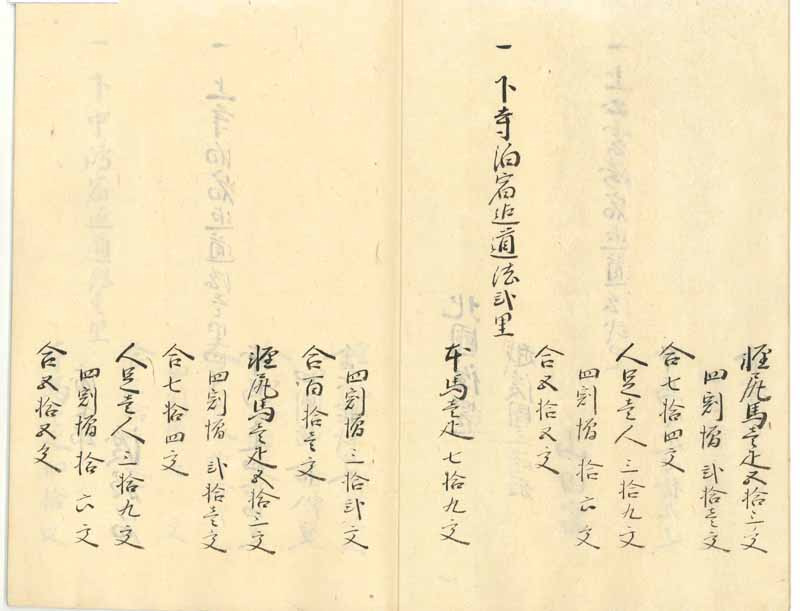 軽尻馬壱疋五拾三文
四割増弐拾壱文
合七拾四文
人足壱人三拾九文
四割増拾六文
合五拾五文
一下寺泊宿迄道法弐里
本馬壱疋七拾九文
四割増三拾弐文
合百拾壱文
軽尻馬壱疋五拾三文
四割増弐拾壱文
合七拾四文
人足壱人三拾九文
四割増拾六文
合五拾五文